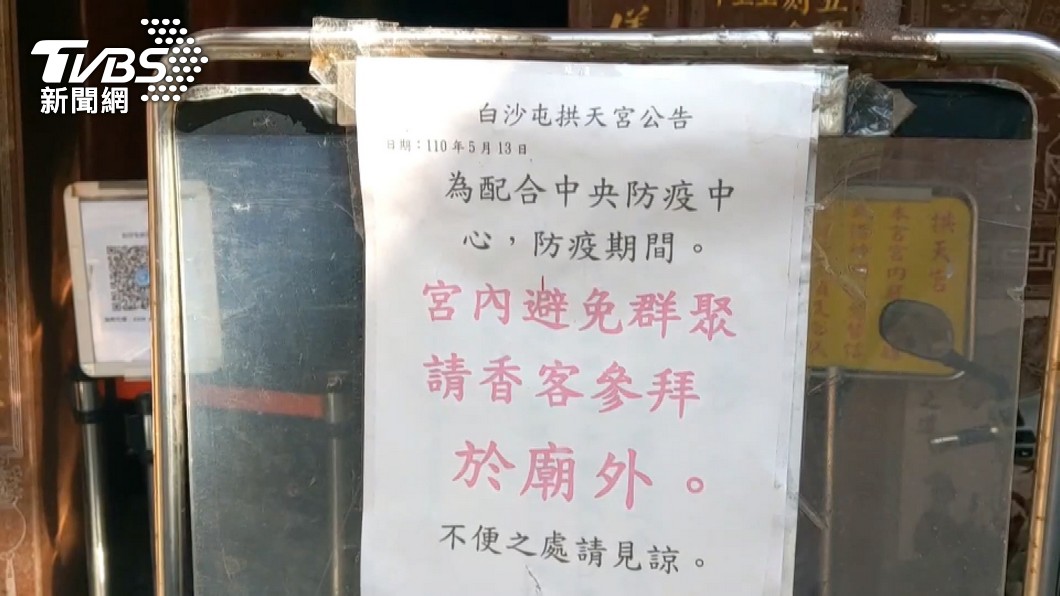 TVBS
新聞網
白沙屯拱天宮公告
日期：110年5月13日
為配合中央防疫中
心，防疫期間。
宮內避免群聚
請香客參拜
於廟外。
不便之處請見諒。
拱天宮